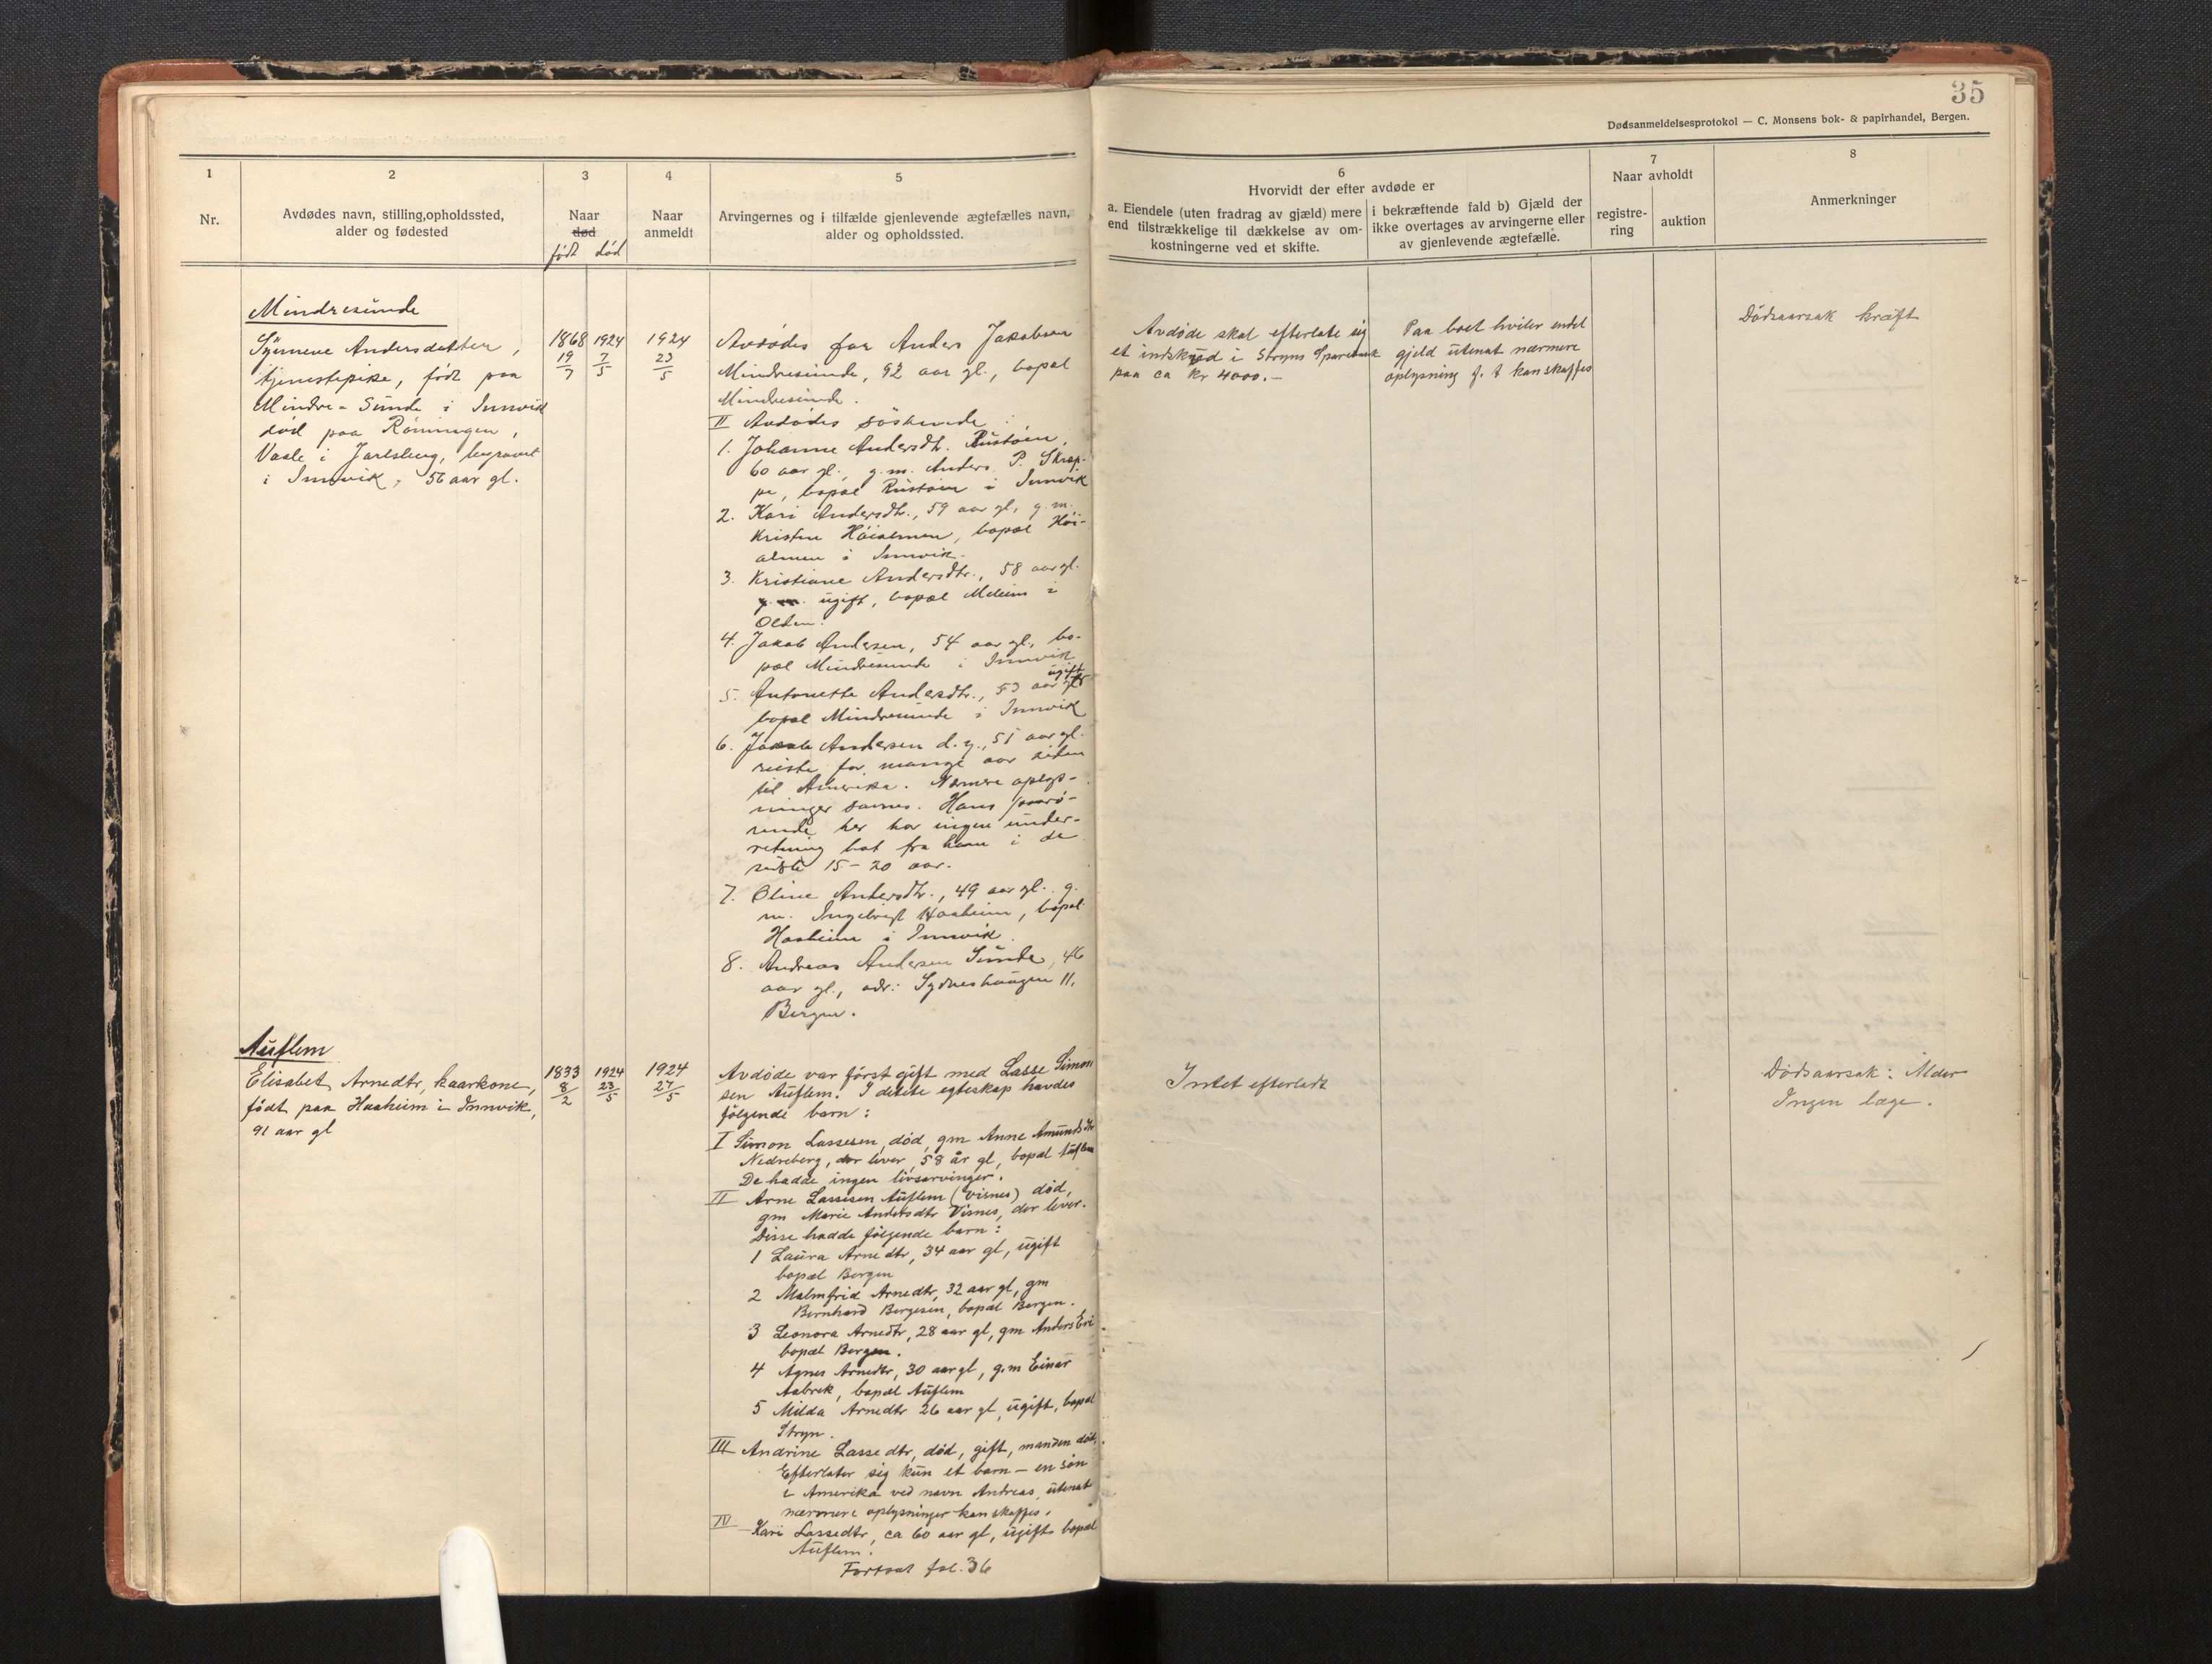 35
Dødsanmeldelsesprotokol — C. Monsens bok- & papirhandel, Bergen.
1
Nr.
2
Avdødes navn, stilling, opholdssted,
alder og fødested
3
Naar
død
født død
4
Naar
anmeldt
5
Arvingernes og i tilfælde gjenlevende ægtefælles navn,
alder og opholdssted.
6
Hvorvidt der efter avdøde er
a. Eiendele (uten fradrag av gjæld) mere
end tilstrækkelige til dækkelse av om-
kostningerne ved et skifte.
i bekræftende fald b) Gjæld der
ikke overtages av arvingerne eller
av gjenlevende ægtefælle.
7
Naar avholdt
registre-
ring
auktion
8
Anmerkninger
Mindresunde
Synneve Andersdatter,
tjenestepike, født paa
Mindre-Sunde i Innvik
død paa Rønningen,
Vaale i Jarlsberg, begravet
i Innvik, 56 aar gl.
1868
19/7
1924
7/5
1924
23/5
Avdødes far Anders Jakobsen
Mindresunde, 92 aar gl., bopæl
Mindresunde.
II Avdødes søskende:
1. Johanne Andersdtr. Rustøen,
60 aar gl., g.m. Anders P. Skrep-
pe, bopæl Rustøen i Innvik
2. Kari Andersdtr., 59 aar gl., g.m.
Kristen Høialmen, bopæl Høi-
almen i Innvik.
3. Kristiane Andersdtr., 58 aar gl.
g.m. ugift, bopæl Melum i
Olden.
4. Jakob Andersen, 54 aar gl., bo-
pæl Mindresunde i Innvik
5. Antonette Andersdtr., 53 aar gl. ugift
bopæl Mindresunde i Innvik
6. Jakob Andersen d.y., 51 aar gl.
reiste for mange aar siden
til Amerika. Nærmere oplys-
ninger savnes. Hans paarø-
rende her har ingen under-
retning hat fra ham i de
sidste 15-20 aar.
7. Oline Andersdtr., 49 aar gl. g.
m. Ingebrigt Haaheim, bopæl
Haaheim i Innvik
8. Andreas Andersen Sunde, 46
aar gl., adr: Sydneshaugen 11,
Bergen.
Avdøde skal efterlate sig
et indskud i Stryns Sparebank
paa ca kr 4000.-
Paa boet hviler endel
gjeld utenat nærmere
oplysning f. t kan skaffes
Dødsaarsak kræft
Auflem
Elisabet Arnedtr, kaarkone,
født paa Haaheim i Innvik,
91 aar gl
1833
8/2
1924
23/5
1924
27/5
Avdøde var først gift med Lasse Simon
sen Auflem. I dette egteskap havdes
følgende barn:
I Simon Lassesen, død, gm Anne Amundsdtr
Nedreberg, der lever, 58 år gl, bopæl Auflem
De hadde ingen livsarvinger.
II Arne Lassesen Auflem (Visnes) død,
gm Marie Andersdtr Visnes, der lever.
Disse hadde følgende barn:
1 Laura Arnedtr, 34 aar gl, ugift
bopæl Bergen
2 Malmfrid Arnedtr, 32 aar gl, gm
Bernhard Børgesen, bopæl Bergen.
3 Leonora Arnedtr, 28 aar gl, gm Anders Eri
bopæl Bergen.
4 Agnes Arnedtr, 30 aar gl, g.m Einar
Aabrek, bopæl Auflem
5 Milda Arnedtr 26 aar gl, ugift, bopæl
Stryn.
III Andrine Lassedtr, død, gift, manden død,
Efterlater sig kun et barn — en søn
i Amerika ved navn Andreas, utenat
nærmere oplysninger kan skaffes.
IV Kari Lassedtr, ca 60 aar gl, ugift bopæl
Auflem.
Fortsat fol. 36
Intet efterladt
Dødsaarsak: Alder
Ingen læge.